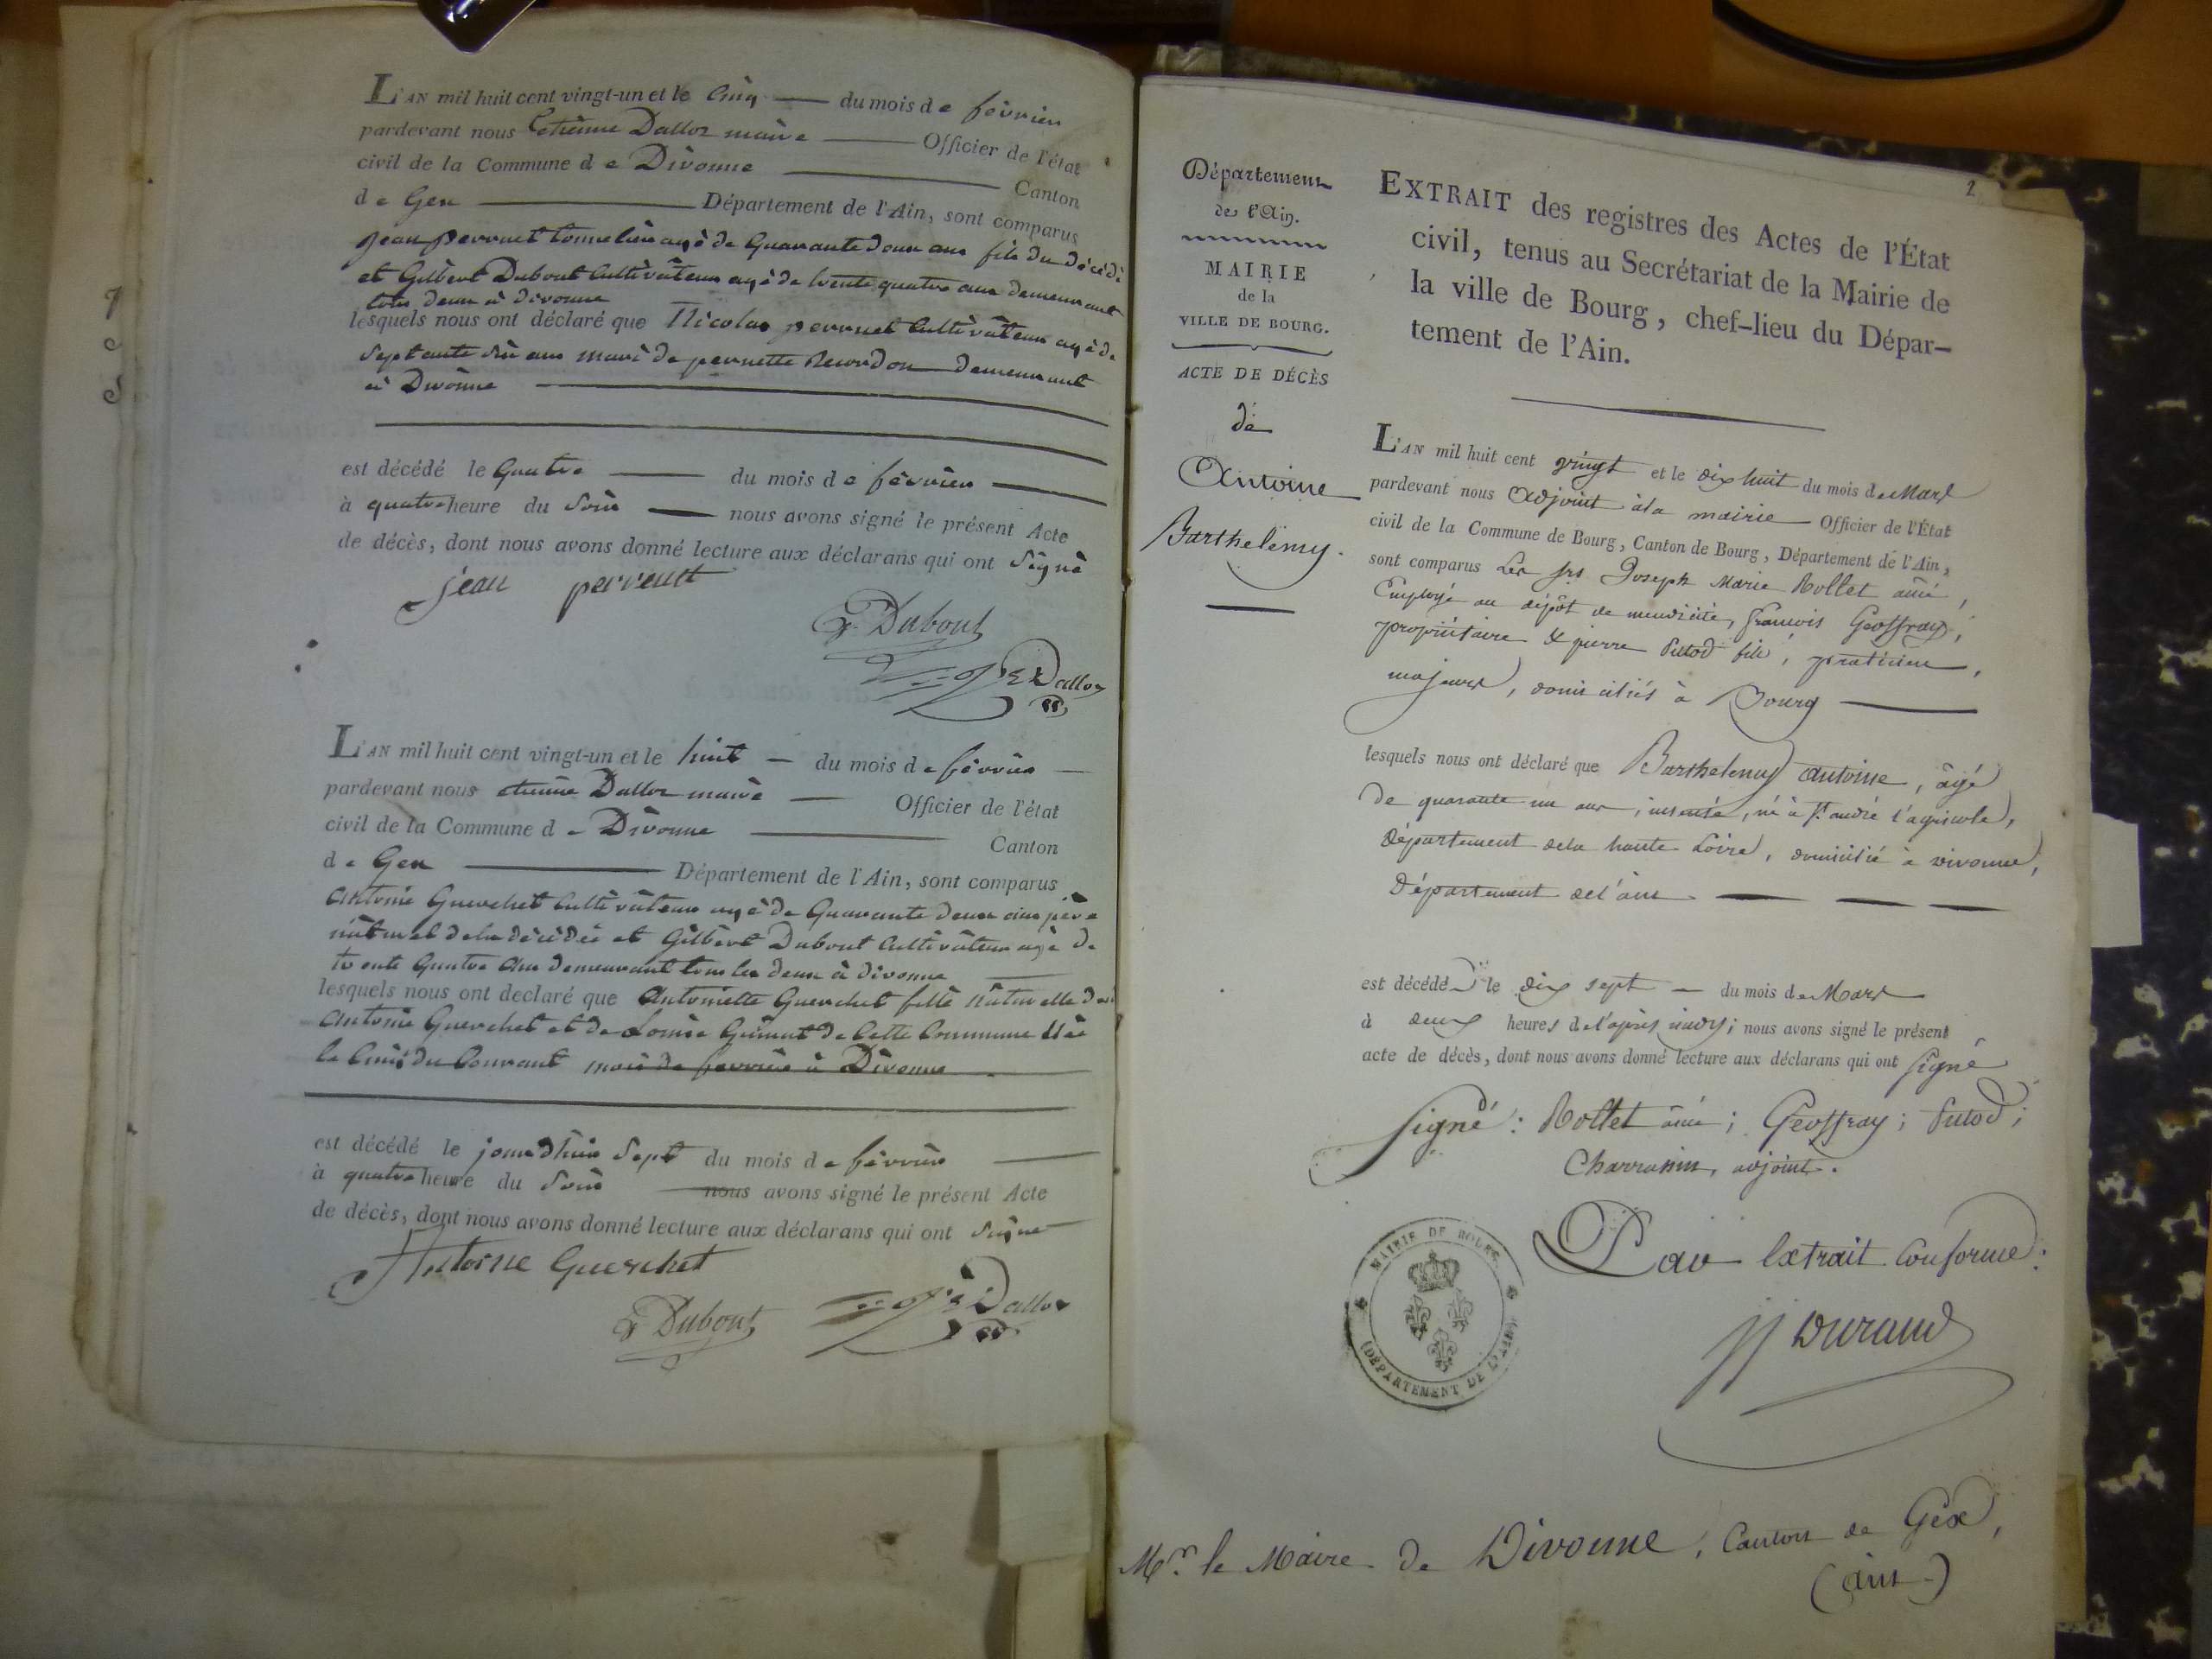 L'AN mil huit cent vingt-un et le Cinq du mois de février
pardevant nous Etiènne Dalloz maire Officier de l'état
civil de la Commune de Divonne Canton
de Gex Département de l'Ain, sont comparus
jean perrouet tonnelier agé de Quarante deux ans fils du décédé
et Gilbert Dubout Cultivateur agé de trente quatre ans demeurant
tous deux à divonne
lesquels nous ont déclaré que Nicolas perrouet Cultivateur agé de
Septante Six ans mari de pernette Recordon demeurant
à Divonne
est décédé le Quatre du mois de février
à quatre heure du Soir nous avons signé le présent Acte
de décès, dont nous avons donné lecture aux déclarans qui ont Signé
jean perrouet
G. Dubout
Dalloz
L'AN mil huit cent vingt-un et le huit du mois de février
pardevant nous etienne Dalloz maire Officier de l'état
civil de la Commune de Divonne Canton
de Gex Département de l'Ain, sont comparus
Antoine Guerchet Cultivateur agé de Quarante deux ans père
naturel de la décédée et Gilbert Dubout Cultivateur agé de
trente Quatre ans demeurant tous les deux à divonne
lesquels nous ont declaré que Antoinette Guerchet fille naturelle de
Antoine Guerchet et de Louise de Cette Commune Née
le Cinq du Courant mois de février à Divonne
est décédé le jourdhuis Sept du mois de février
à quatre heure du Soir nous avons signé le présent Acte
de décès, dont nous avons donné lecture aux déclarans qui ont Signe
Antoine Guerchet
G. Dubout Dalloz
2
Département
de l'Ain.
MAIRIE
de la
VILLE DE BOURG.
ACTE DE DÉCÈS
de
Antoine
Barthelemy.
EXTRAIT des registres des Actes de l'État
civil, tenus au Secrétariat de la Mairie de
la ville de Bourg, chef-lieu du Dépar-
tement de l'Ain.
L'AN mil huit cent vingt et le dix huit du mois de Mars
pardevant nous adjoint à la mairie Officier de l'État
civil de la Commune de Bourg, Canton de Bourg, Département de l'Ain,
sont comparus Les Srs Joseph Marie Rollet ainé,
Employé au dépôt de mendicité, françois Geoffray,
propriétaire & pierre Putod fils, praticien,
majeurs, domiciliés à Bourg
lesquels nous ont déclaré que Barthelemy antoine, âgé
de quarante un ans, insensé, né à St. andré l'agricole,
Département de la haute Loire, domicilié à divonne,
Département de l'ain
est décédé le dix sept du mois de Mars
à deux heures de l'après midy; nous avons signé le présent
acte de décès, dont nous avons donné lecture aux déclarans qui ont signé
Signé: Rollet ainé; Geoffray; Putod;
Charrassin, adjoint.
MAIRIE DE BOURG
(DÉPARTEMENT DE L'AIN)
Par Extrait Conforme:
JJ Durand
Mr. le Maire de Divonne, Canton de Gex,
(ain)